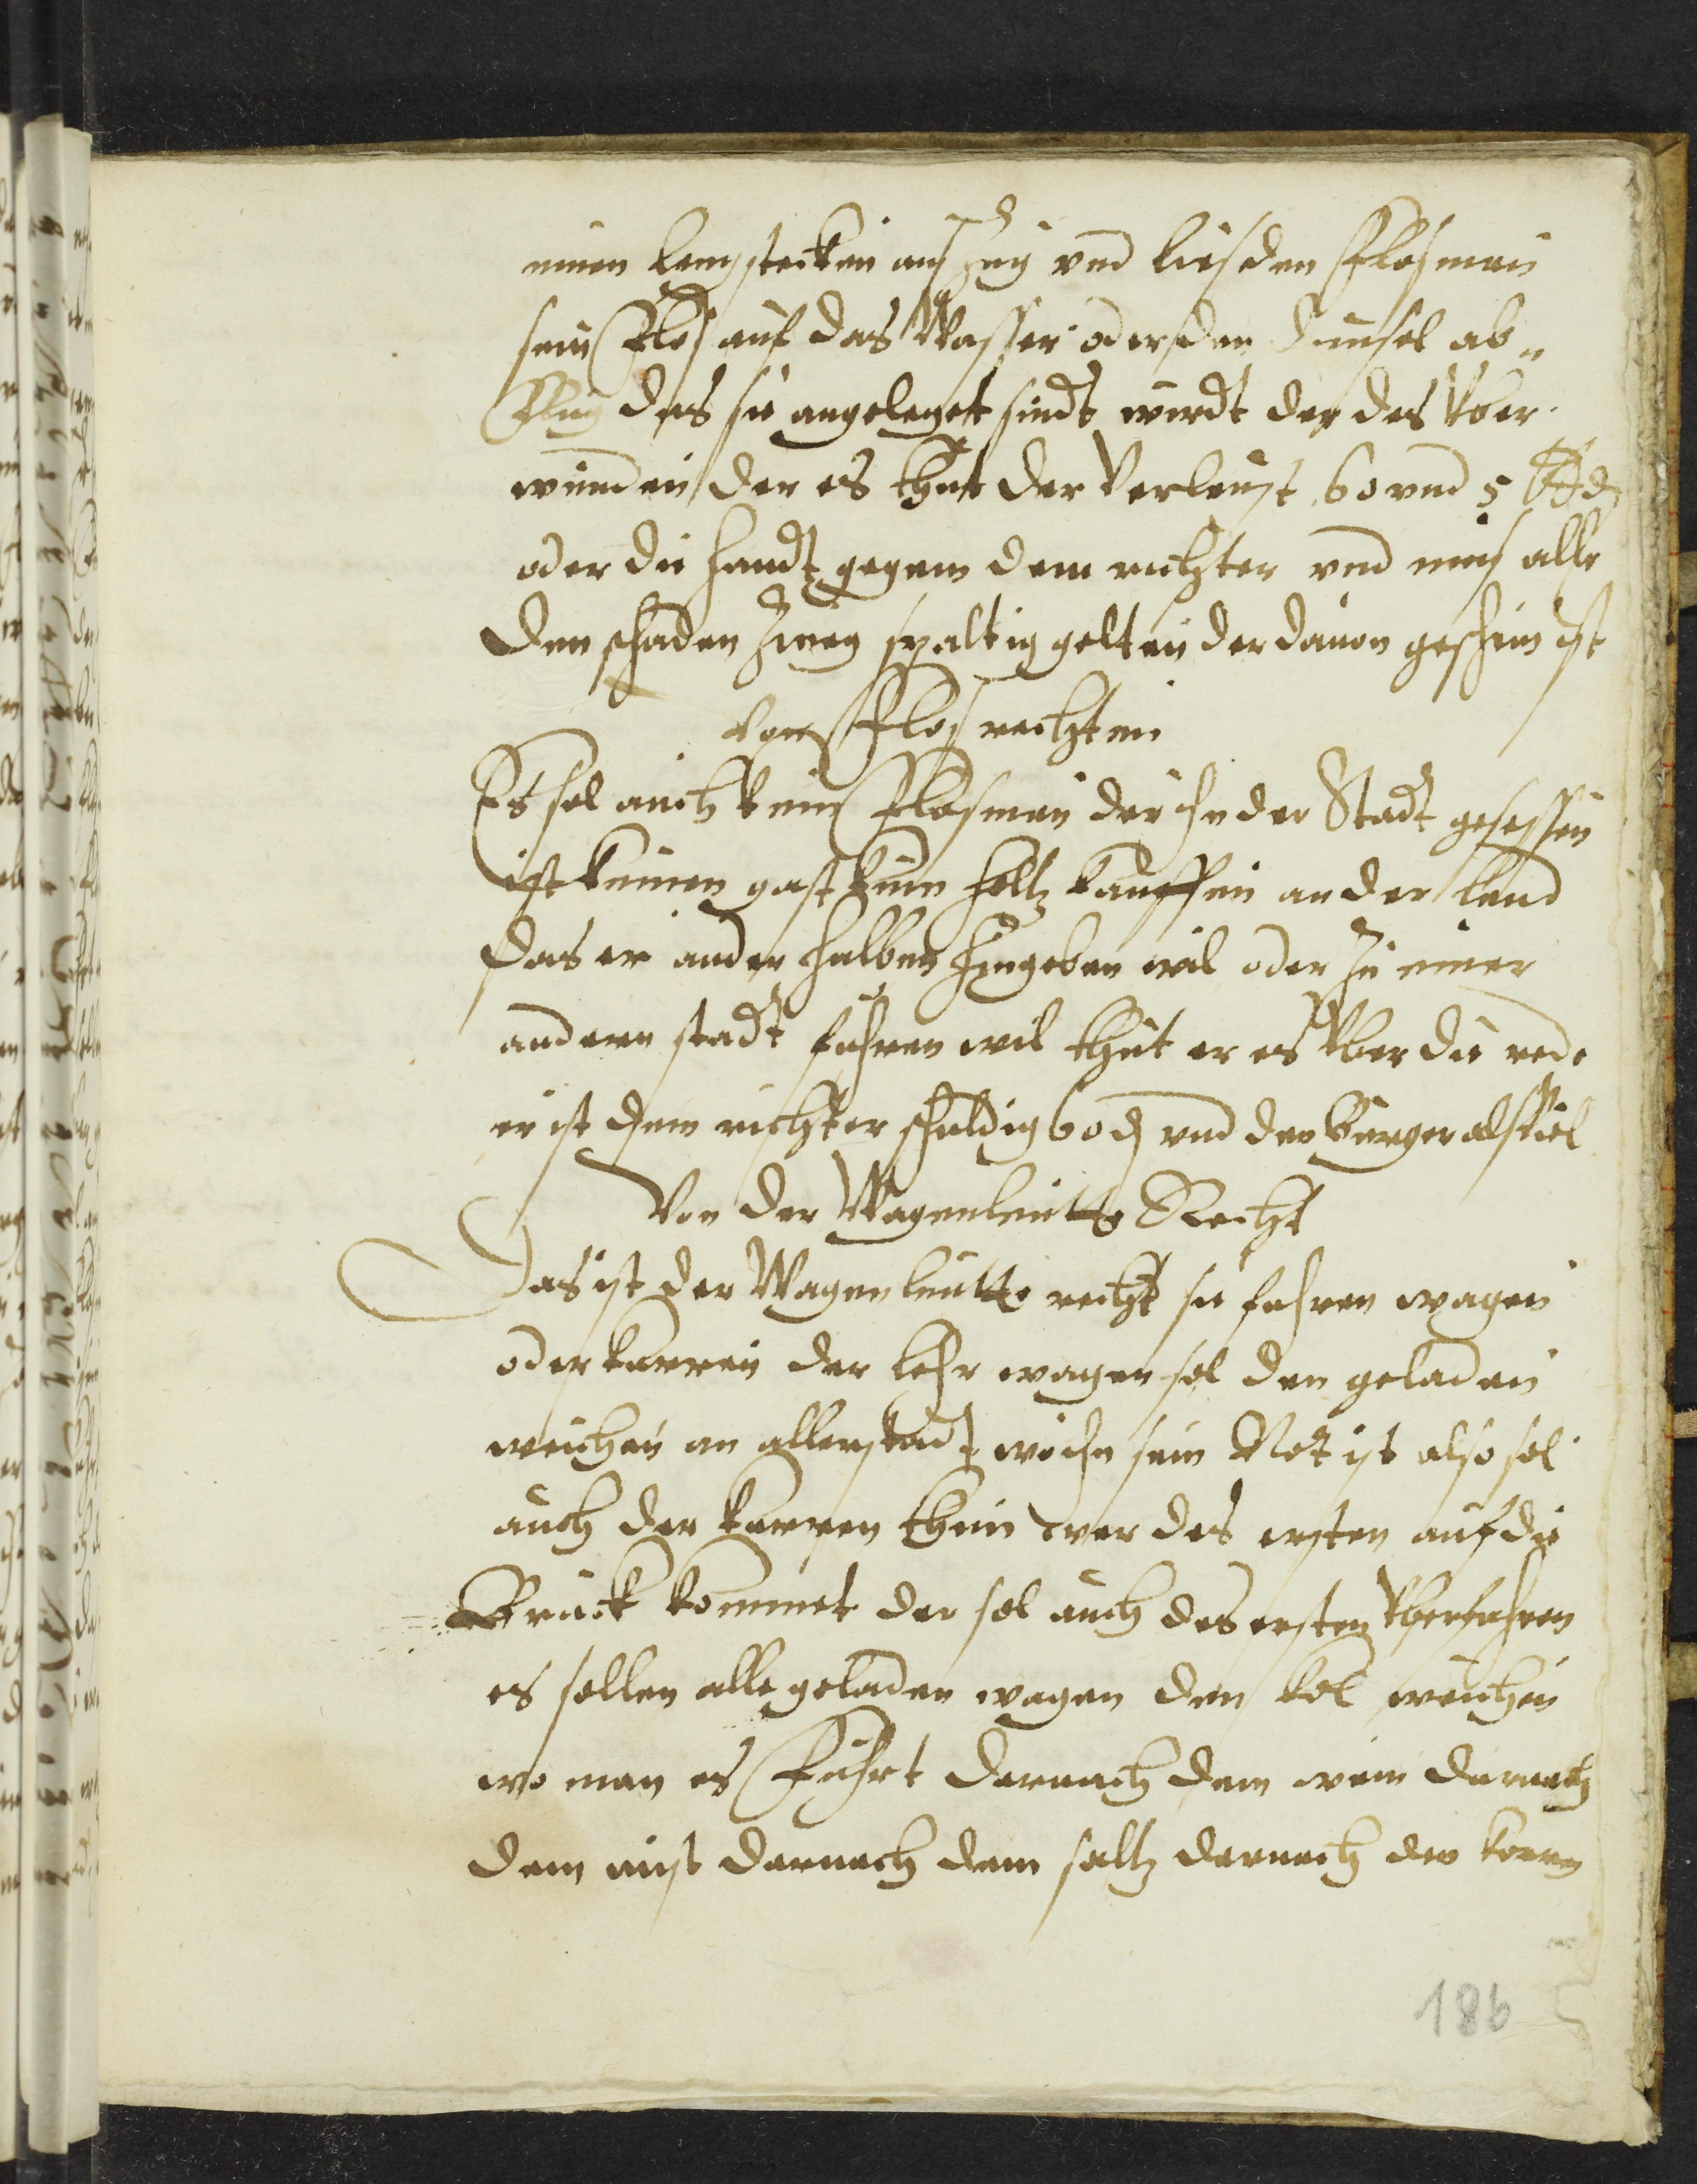 einen lengstecken aus zug vnd lies den Flosman
sein Flos auf das Wasser oder den Dunsel ab„
Slug das sie angeleget sindt wirdt der des vber
wunden der es thut der verleust 60 vnd 5 ℔ ₰
oder die handt gegem dem richter vnd mus alle
den schaden Zweyspaltig gelten der dauon geschein ist
von Flosrechten
Es sol auch kein Flosman der in der Stadt gesessen
ist keinen gast kein holtz kauffen an der lend
das er ander halben hingeben wil oder Zu einer
andern stadt fuhren wil thut er es vber die rede
er ist dem richter schuldig 60 ₰ vnd den burger alsuiel
Von der Wagenleutte Recht
Das ist der Wagenleutte recht sie fahren wagen
oder karren der lehr wagen sol den geladen
weichen an aller stadt wo in sein Not ist also sol
auch der karren thun wer des ersten auf die
Bruck kommet der sol auch des ersten vberfahren
es sollen alle geladen wagen den kol weichen
wo man es Fuhrt darnach dem wein darnach
dem mist darnach dem saltz darnach den korn
186